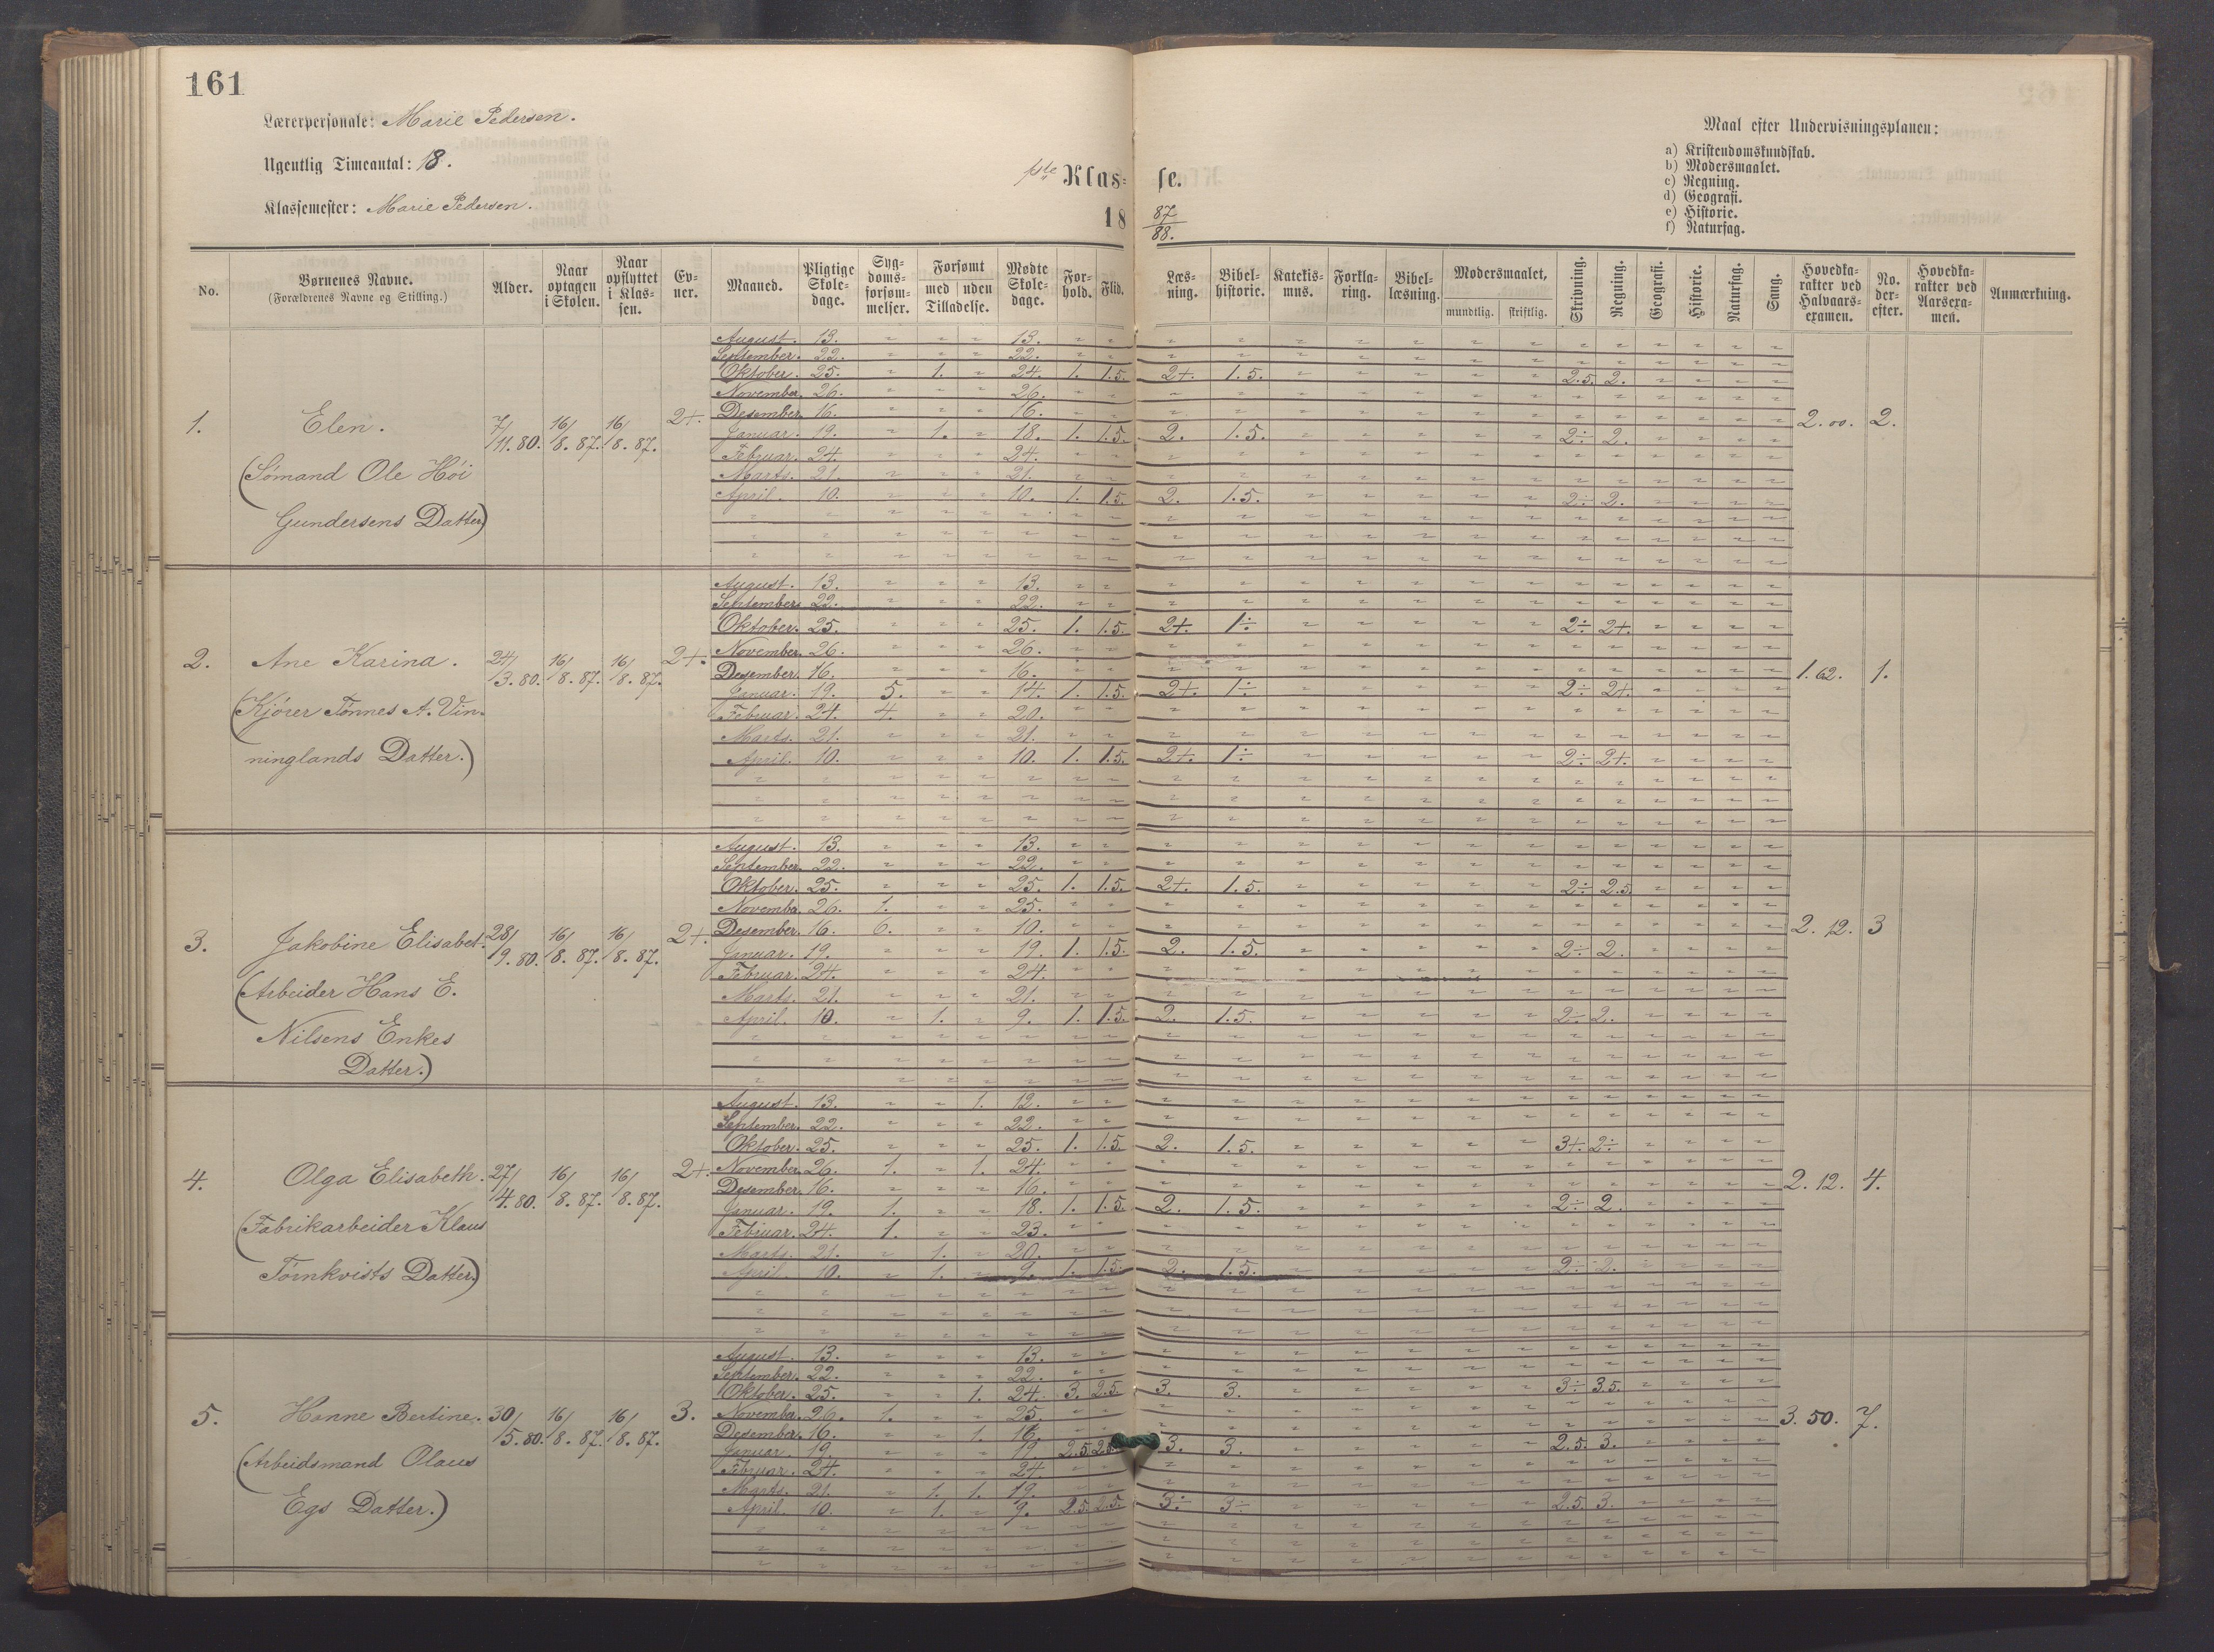 161
Lærerpersonale: Marie Pedersen.
Ugentlig Timeantal: 18.
Klassemester: Marie Pedersen.
1ste Klasse.
18 87/88.
Maal efter Undervisningsplanen:
a) Kristendomskundskab.
b) Modersmaalet.
c) Regning.
d) Geografi.
e) Historie.
f) Naturfag.
No. | Børnenes Navne. (Forældrenes Navne og Stilling.) | Alder. | Naar optagen i Skolen. | Naar opflyttet i Klassen. | Evner. | Maaned. | Pligtige Skoledage. | Sygdomsforsømmelser. | Forsømt med uden Tilladelse. | Mødte Skoledage. | Forhold. | Flid. | Læsning. | Bibelhistorie. | Katekismus. | Forklaring. | Bibellæsning. | Modersmaalet, mundtlig. skriftlig. | Skrivning. | Regning. | Geografi. | Historie. | Naturfag. | Sang. | Hovedkarakter ved Halvaarsexamen. | No. derefter. | Hovedkarakter ved Aarsexamen. | Anmærkning.
1. Elen. 7/11.80. 16/8.87. 16/8.87. 2+. 2.00. 2.
(Sømand Ole Høi
Gundersens Datter)
August. 13. " " " 13.
September. 22. " " " 22.
Oktober. 25. " 1. " 24. 1. 1.5. 2+. 1.5. 2.5. 2.
November. 26. " " " 26.
Desember. 16. " " " 16.
Januar. 19. " 1. " 18. 1. 1.5. 2. 1.5. 2÷ 2.
Februar. 24. " " " 24.
Marts. 21. " " " 21.
April. 10. " " " 10. 1. 1.5. 2. 1.5. 2÷ 2.
2. Ane Karina. 24/3.80. 16/8.87. 16/8.87. 2+. 1.62. 1.
(Kjører Tønnes A. Vin-
ninglands Datter.)
August. 13. " " " 13.
September. 22. " " " 22.
Oktober. 25. " " " 25. 1. 1.5. 2+. 1÷ 2÷ 2+.
November. 26. " " " 26.
Desember. 16. " " " 16.
Januar. 19. 5. " " 14. 1. 1.5. 2+. 1÷ 2÷ 2+.
Februar. 24. 4. " " 20.
Marts. 21. " " " 21.
April. 10. " " " 10. 1. 1.5. 2+. 1÷ 2÷ 2+.
3. Jakobine Elisabet. 28/9.80. 16/8.87. 16/8.87. 2+. 2.12. 3
(Arbeider Hans E.
Nilsens Enkes
Datter.)
August. 13. " " " 13.
September. 22. " " " 22.
Oktober. 25. " " " 25. 1. 1.5. 2+. 1.5. 2÷ 2.5.
November. 26. 1. " " 25.
Desember. 16. 6. " " 10.
Januar. 19. " " " 19. 1. 1.5. 2. 1.5. 2÷ 2.
Februar. 24. " " " 24.
Marts. 21. " " " 21.
April. 10. " 1. " 9. 1. 1.5. 2. 1.5. 2÷ 2.
4. Olga Elisabeth. 27/4.80. 16/8.87. 16/8.87. 2+. 2.12. 4.
(Fabrikarbeider Klaus
Törnkvists Datter.)
August. 13. " " 1. 12.
September. 22. " " " 22.
Oktober. 25. " " " 25. 1. 1.5. 2. 1.5. 3+. 2÷
November. 26. 1. " 1. 24.
Desember. 16. " " " 16.
Januar. 19. 1. " " 18. 1. 1.5. 2. 1.5. 2÷ 2.
Februar. 24. 1. " " 23.
Marts. 21. " 1. " 20.
April. 10. " 1. " 9. 1. 1.5. 2. 1.5. 2÷ 2.
5. Hanne Bertine. 30/5.80. 16/8.87. 16/8.87. 3. 3.50. 7.
(Arbeidsmand Olaus
Egs Datter.)
August. 13. " " " 13.
September. 22. " " " 22.
Oktober. 25. " " 1. 24. 3. 2.5. 3. 3. 3÷ 3.5.
November. 26. 1. " " 25.
Desember. 16. " " 1.
Januar. 19. " " " 19 2.5. 3. 3. 2.5. 3.
Februar. 24. " " " 24.
Marts. 21. " 1. 1. 19.
April. 10. " 1. " 9. 2.5. 2.5. 3÷ 3÷ 2.5. 3.